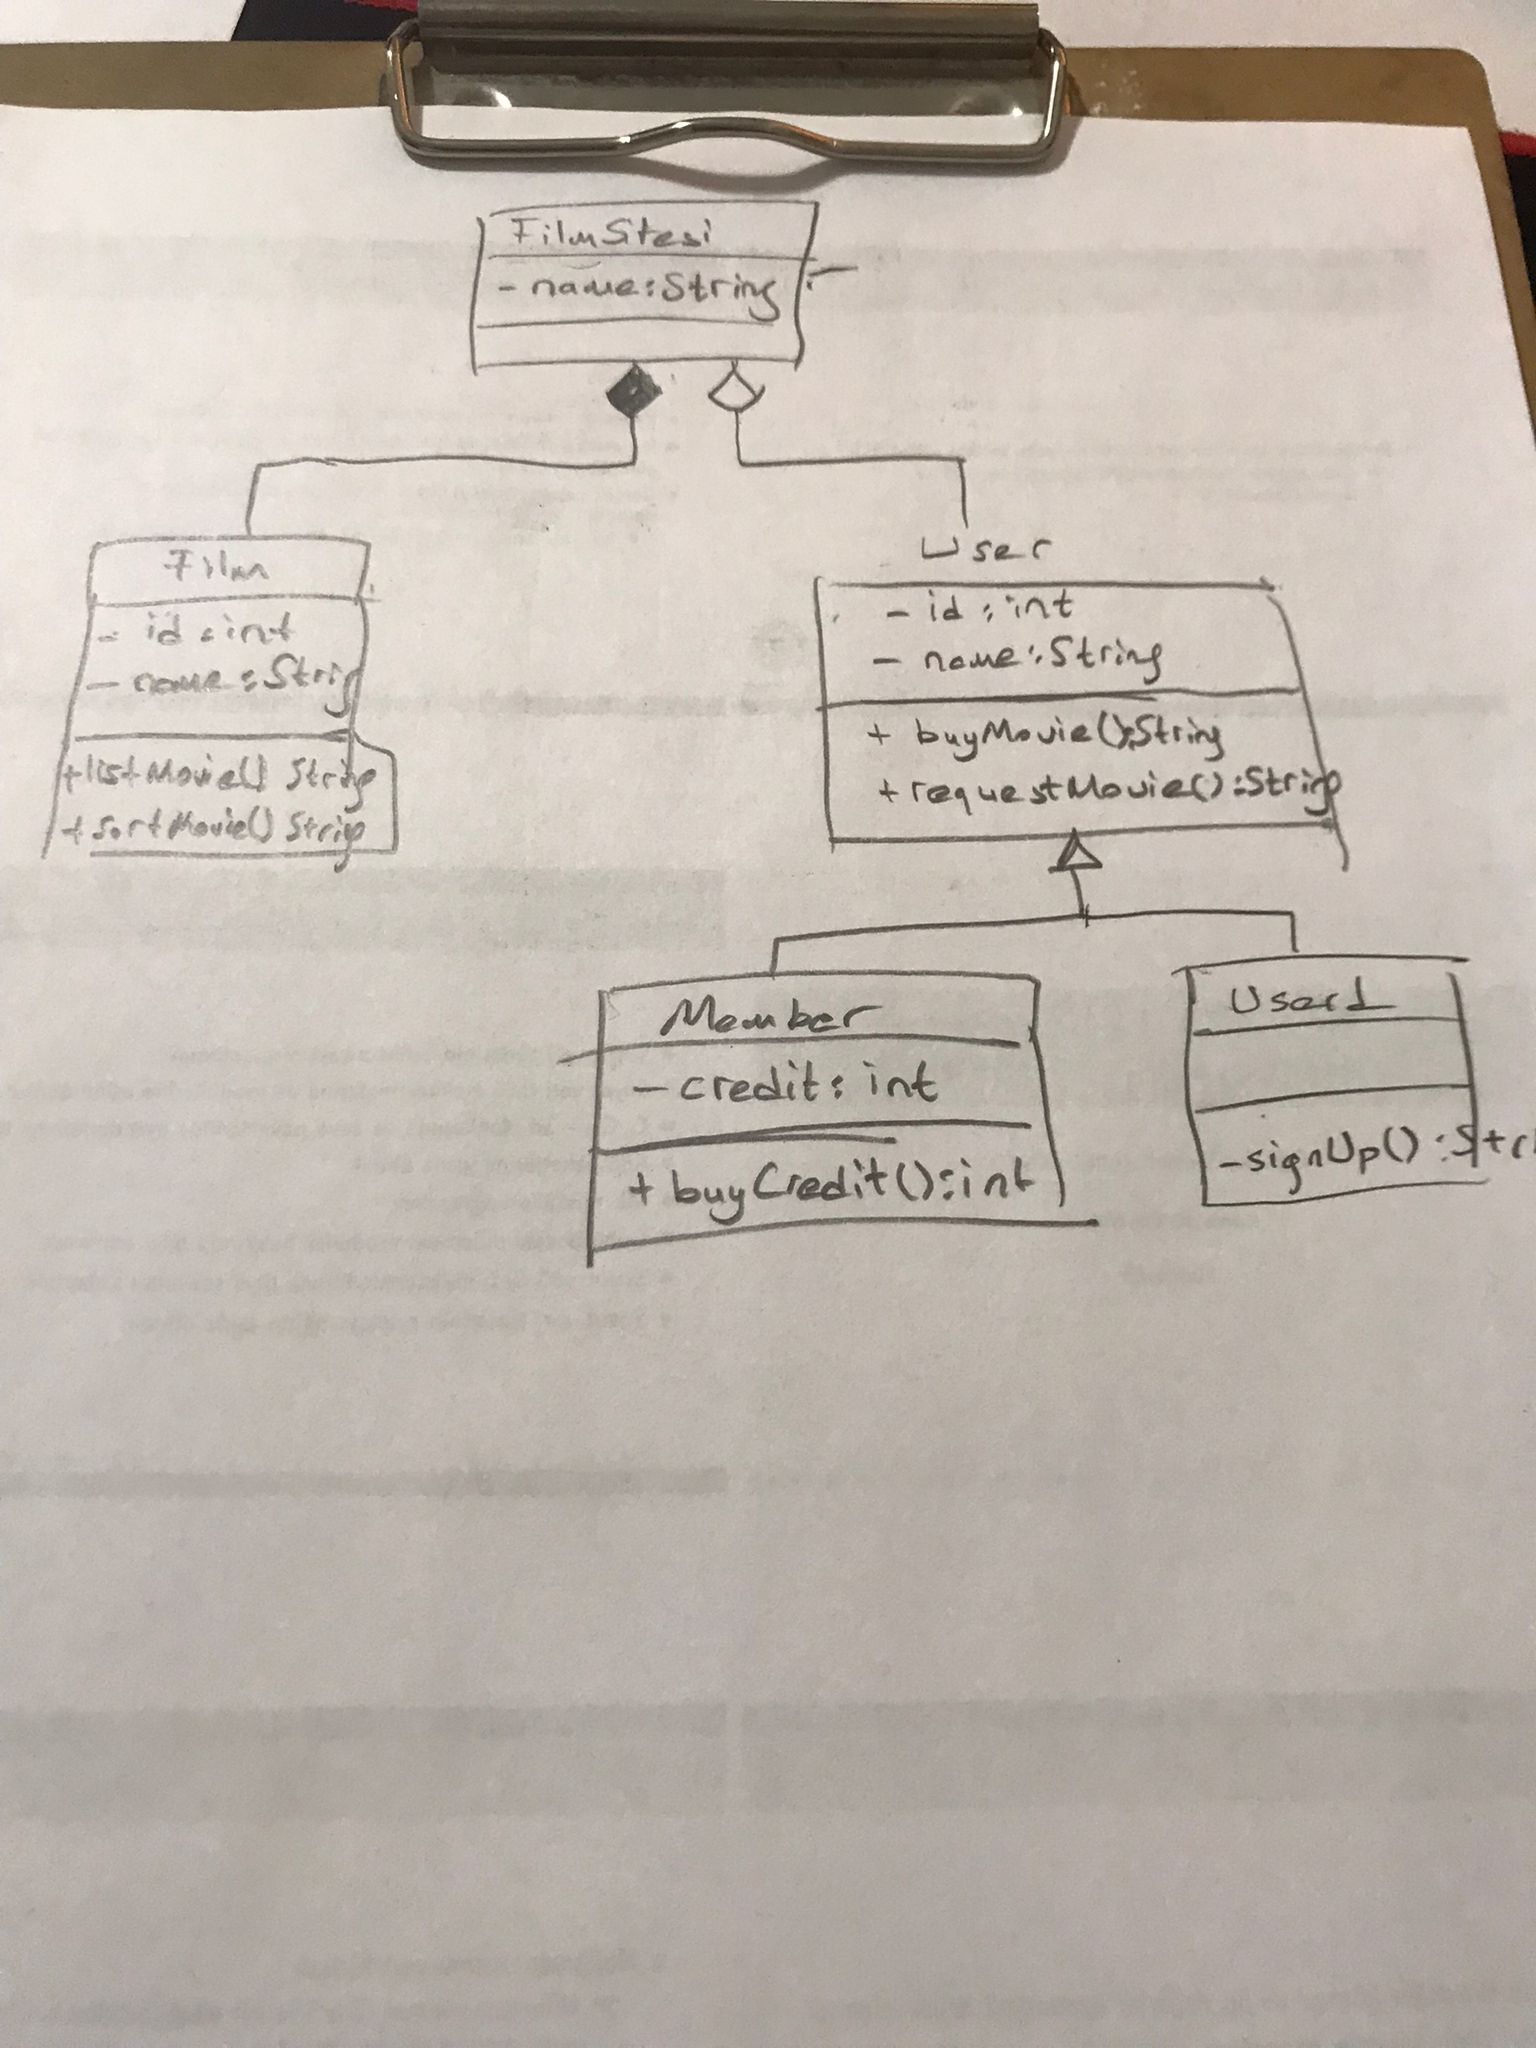 FilmSitesi
- name:String
Film
- id : int
- name : String
+listMovie() String
+sortMovie() String
User
- id : int
- name : String
+ buyMovie():String
+requestMovie() :String
Member
- credit : int
+ buyCredit():int
User1
-signUp() :Stri